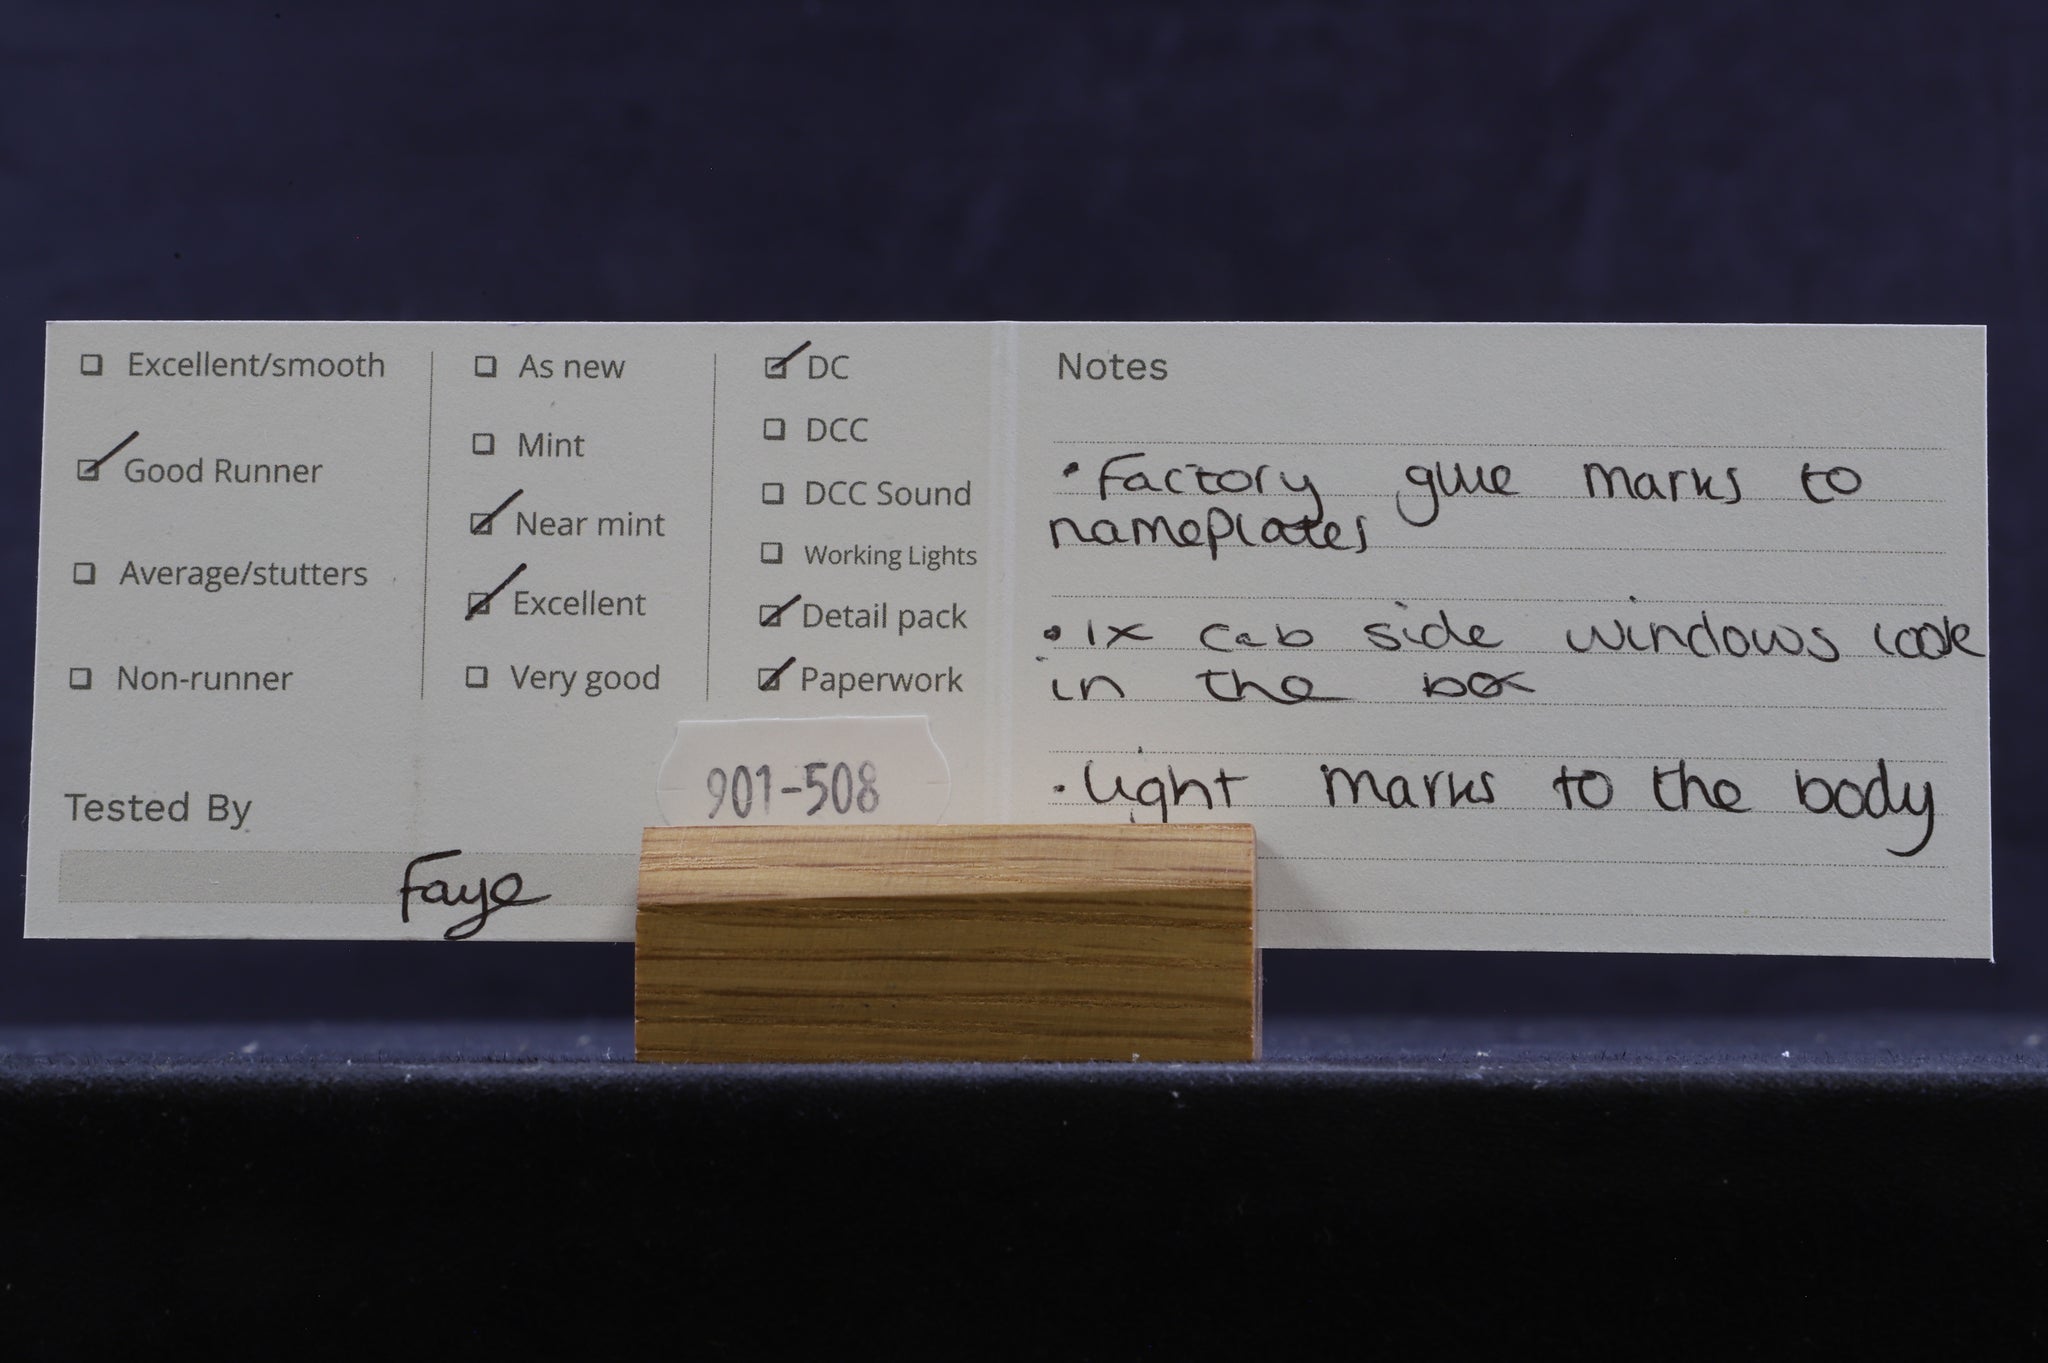 Excellent/smooth
Good Runner
Average/stutters
Non-runner
As new
Mint
Near mint
Excellent
Very good
DC
DCC
DCC Sound
Working Lights
Detail pack
Paperwork
Tested By
Faye
901-508
Notes
• Factory glue marks to
nameplates
• 1x cab side windows loose
in the box
• Light marks to the body